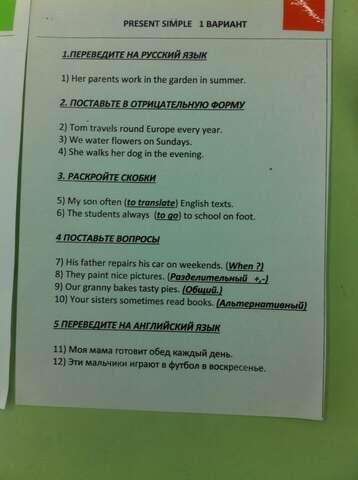 PRESENT SIMPLE 1 ВАРИАНТ
1.ПЕРЕВЕДИТЕ НА РУССКИЙ ЯЗЫК
1) Her parents work in the garden in summer.
2. ПОСТАВЬТЕ В ОТРИЦАТЕЛЬНУЮ ФОРМУ
2) Tom travels round Europe every year.
3) We water flowers on Sundays.
4) She walks her dog in the evening.
3. РАСКРОЙТЕ СКОБКИ
5) My son often (to translate) English texts.
6) The students always (to go) to school on foot.
4 ПОСТАВЬТЕ ВОПРОСЫ
7) His father repairs his car on weekends. (When ?)
8) They paint nice pictures. (Разделительный +,-)
9) Our granny bakes tasty pies. (Общий.)
10) Your sisters sometimes read books. (Альтернативный)
5 ПЕРЕВЕДИТЕ НА АНГЛИЙСКИЙ ЯЗЫК
11) Моя мама готовит обед каждый день.
12) Эти мальчики играют в футбол в воскресенье.